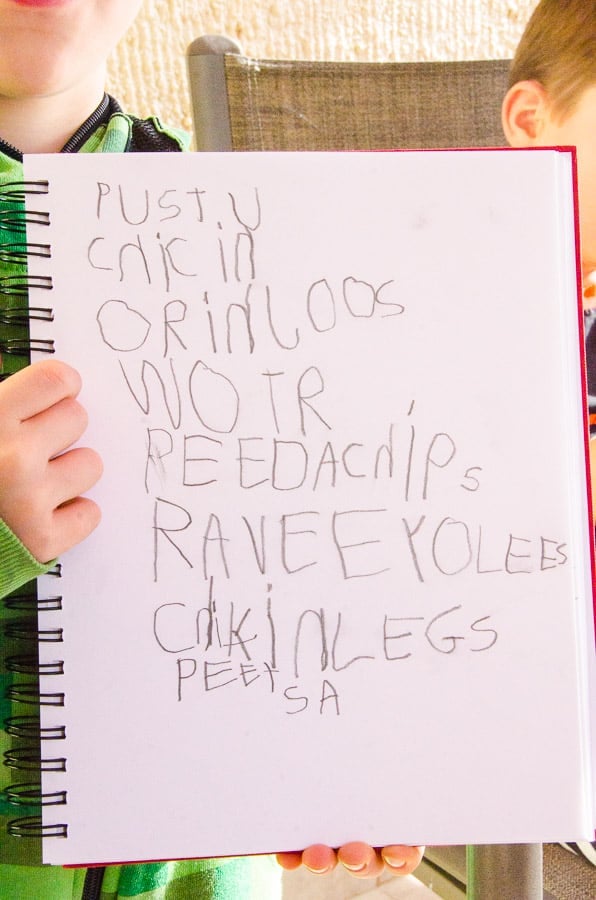 PUSt U
CNiC iN
ORiNLOOS
WOTR
PEEDACNiPs
RAVEEYOLEES
CNiKiNLEGS
PEEt
SA